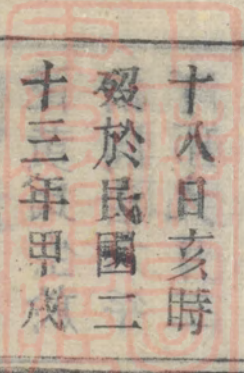 十八日亥時
歿於民國二
十三年甲戌